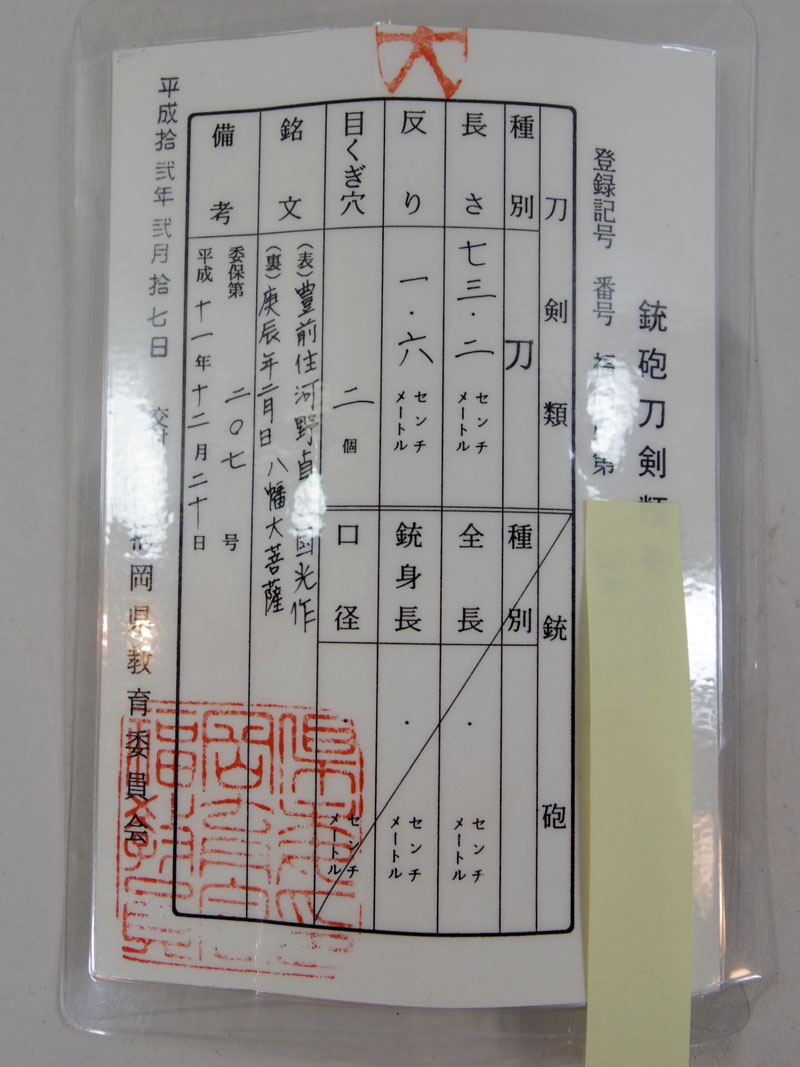 銃砲刀剣類
登録記号 番号 福岡県第
刀剣類
種別 刀
長さ 七三.二 センチメートル
反り 一.六 センチメートル
目くぎ穴 二個
銘文 (表)豊前住河野貞 國光作
(裏)庚辰年二月日 八幡大菩薩
備考 委保第 二〇七 号
平成 十一年十二月二十日
銃砲
種別
全長 . センチメートル
銃身長 . センチメートル
口径 . センチメートル
平成拾弐年弐月拾七日 交付
福岡県教育委員会